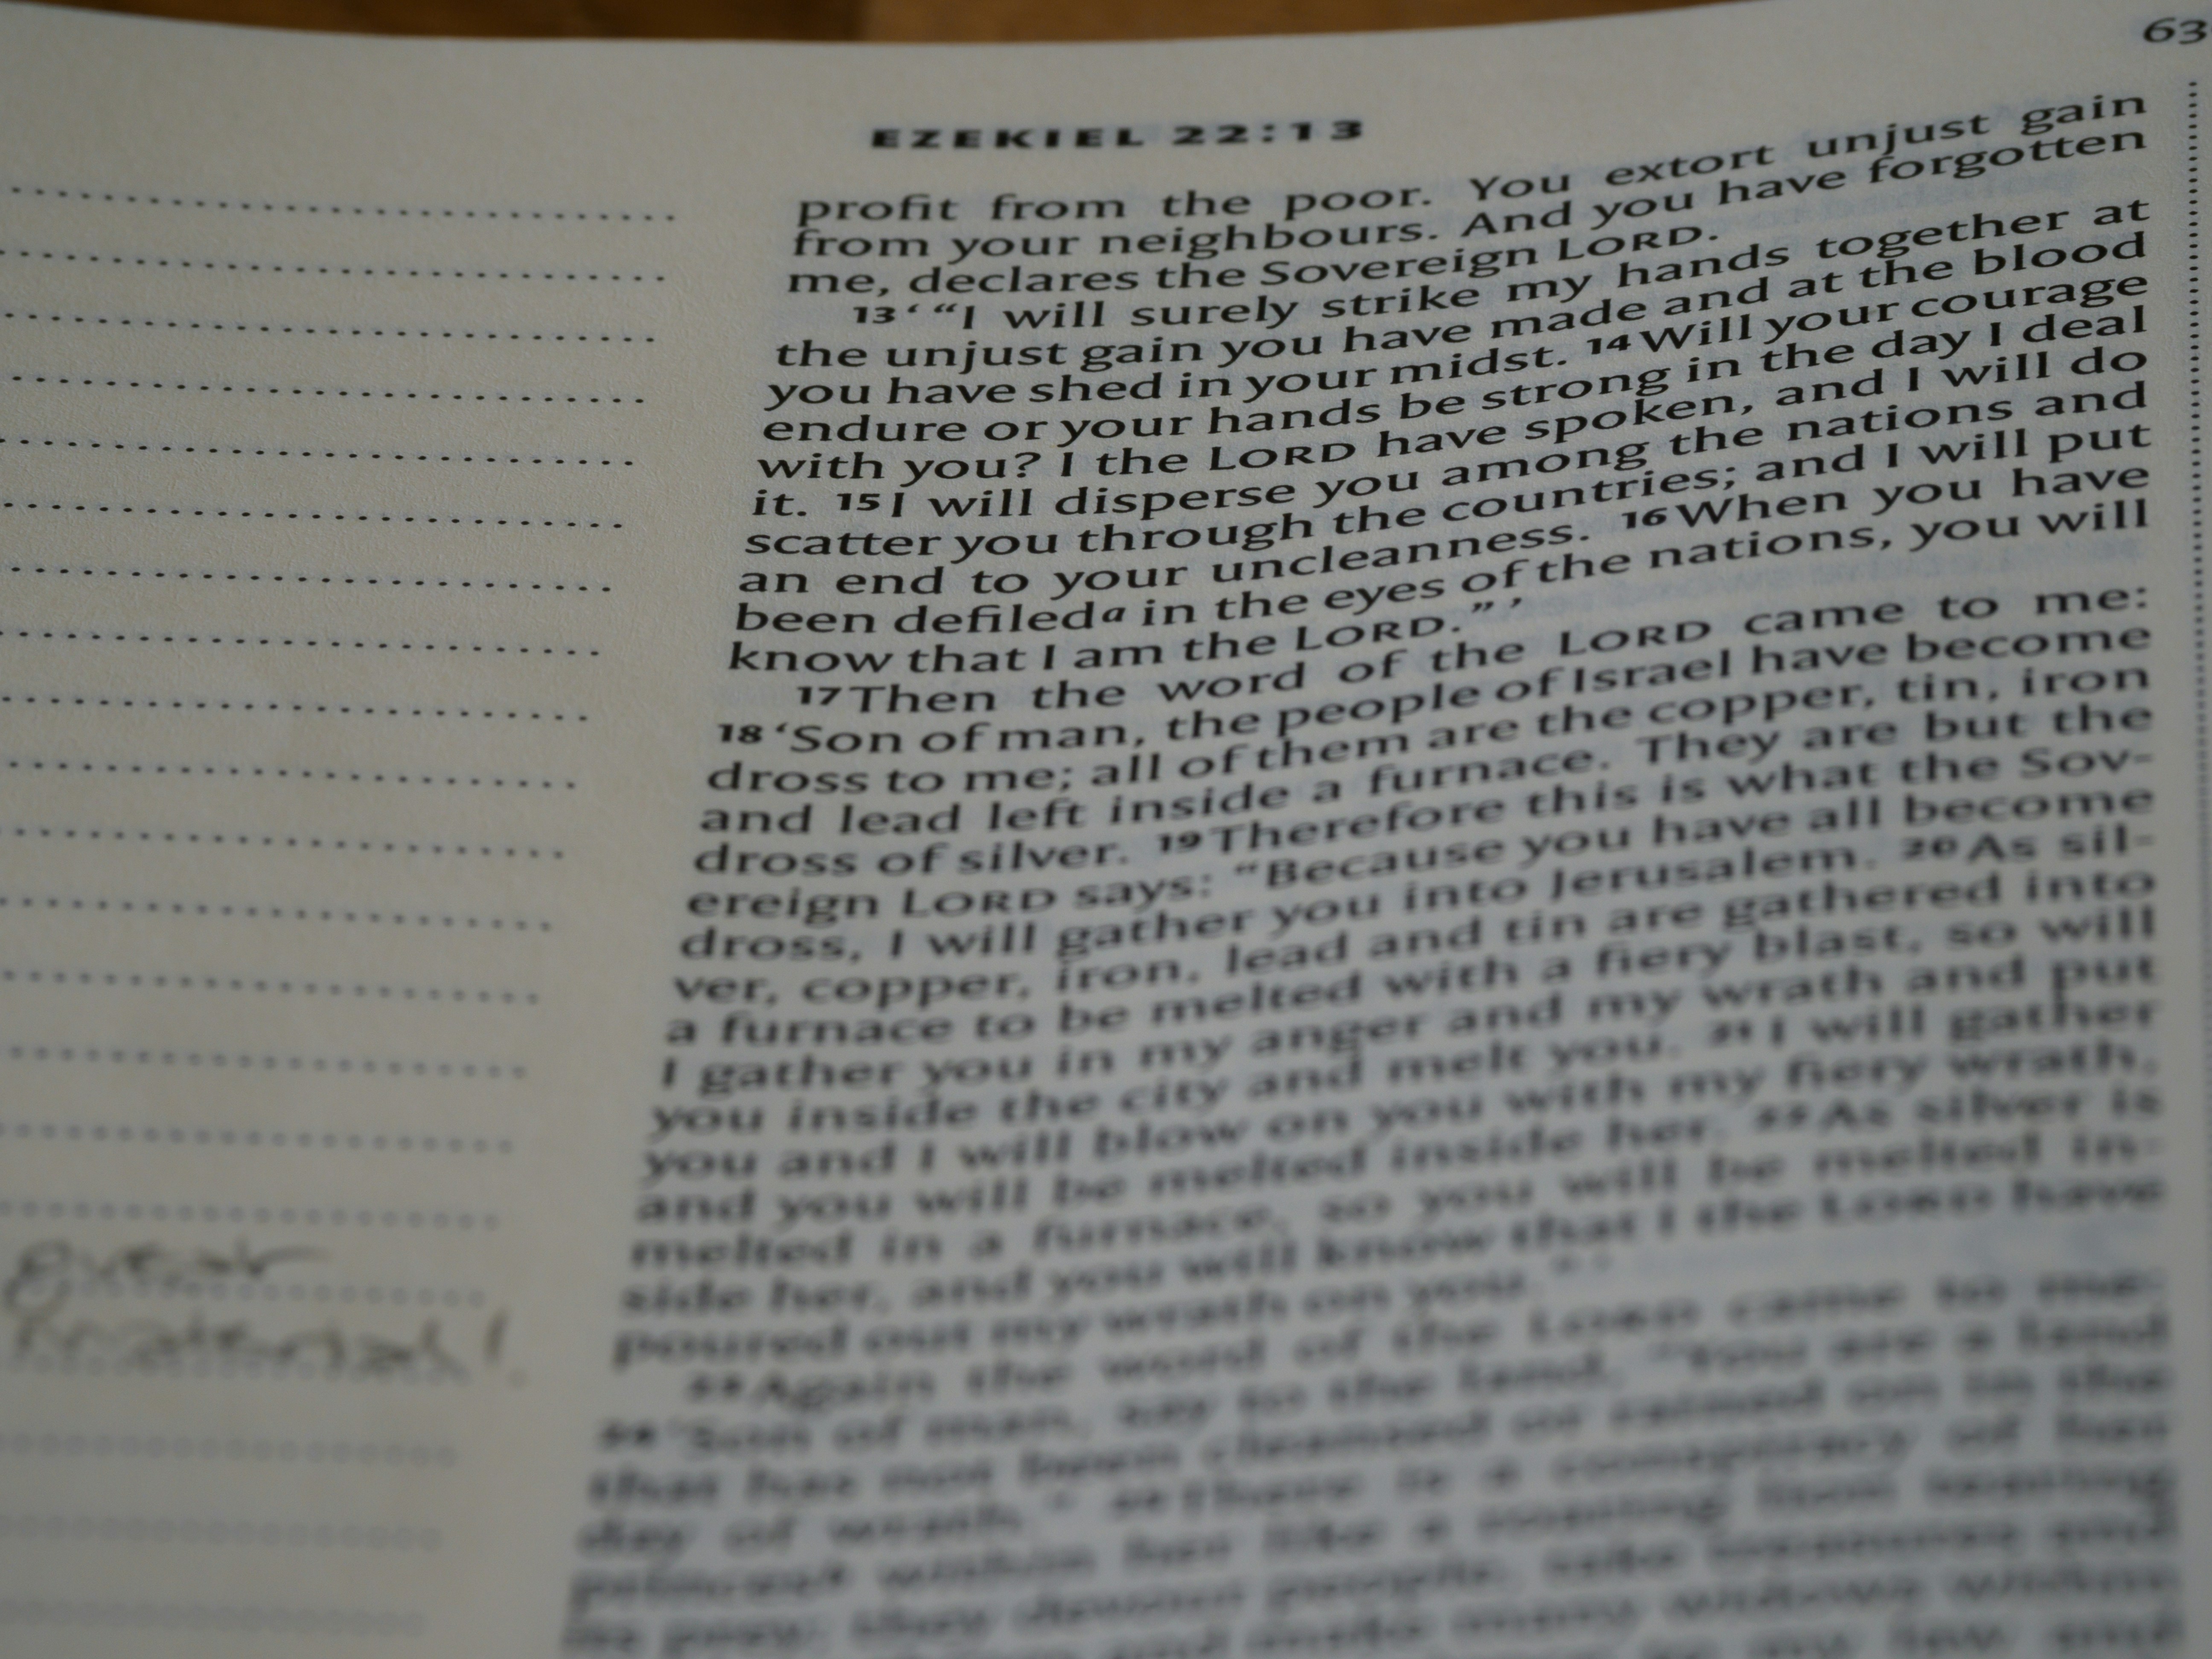 63
EZEKIEL 22:13
profit from the poor. You extort unjust gain
from your neighbours. And you have forgotten
me, declares the Sovereign LORD.
13 ‘ “I will surely strike my hands together at
the unjust gain you have made and at the blood
you have shed in your midst. 14 Will your courage
endure or your hands be strong in the day I deal
with you? I the LORD have spoken, and I will do
it. 15 I will disperse you among the nations and
scatter you through the countries; and I will put
an end to your uncleanness. 16 When you have
been defiled a in the eyes of the nations, you will
know that I am the LORD.” ’
17 Then the word of the LORD came to me:
18 ‘Son of man, the people of Israel have become
dross to me; all of them are the copper, tin, iron
and lead left inside a furnace. They are but the
dross of silver. 19 Therefore this is what the Sov-
ereign LORD says: “Because you have all become
dross, I will gather you into Jerusalem. 20 As sil-
ver, copper, iron, lead and tin are gathered into
a furnace to be melted with a fiery blast, so will
I gather you in my anger and my wrath and put
you inside the city and melt you. 21 I will gather
you and I will blow on you with my fiery wrath,
and you will be melted inside her. 22 As silver is
melted in a furnace, so you will be melted in-
side her, and you will know that I the LORD have
poured out my wrath on you.” ’
23 Again the word of the LORD came to me:
24 ‘Son of man, say to the land, “You are a land
that has not been cleansed or rained on in the
day of wrath.” 25 There is a conspiracy of her
princes within her like a roaring lion tearing
its prey; they devour people, take treasures and
material!